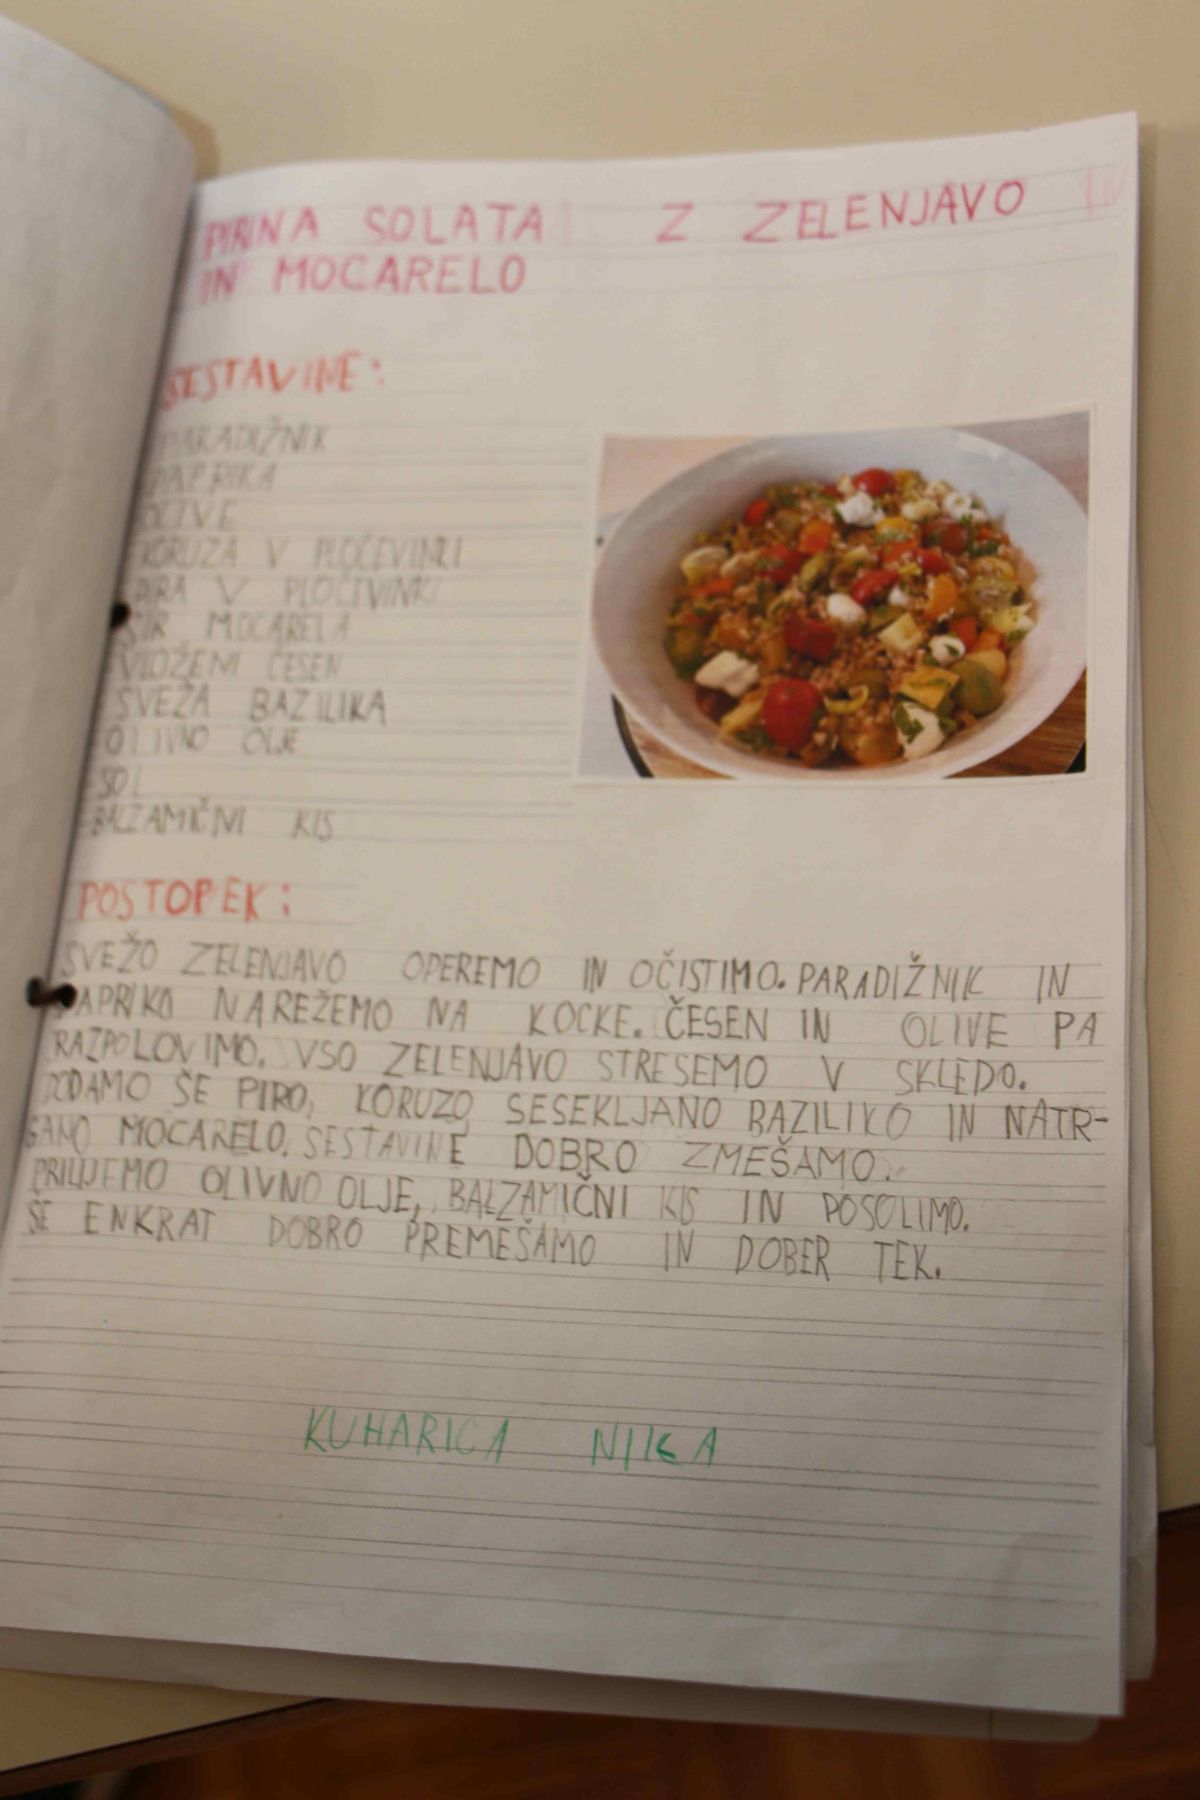 PIRINA SOLATA Z ZELENJAVO
IN MOCARELO
SESTAVINE:
PARADIŽNIK
PAPRIKA
OLIVE
KORUZA V PLOČEVINKI
PIRA V PLOČEVINKI
SIR MOCARELA
VLOŽENI ČESEN
SVEŽA BAZILIKA
OLIVNO OLJE
SOL
BALZAMIČNI KIS
POSTOPEK:
SVEŽO ZELENJAVO OPEREMO IN OČISTIMO. PARADIŽNIK IN
PAPRIKO NAREŽEMO NA KOCKE. ČESEN IN OLIVE PA
RAZPOLOVIMO. VSO ZELENJAVO STRESEMO V SKLEDO.
DODAMO ŠE PIRO, KORUZO, SESEKLJANO BAZILIKO IN NATR-
GANO MOCARELO. SESTAVINE DOBRO ZMEŠAMO.
PRILIJEMO OLIVNO OLJE, BALZAMIČNI KIS IN POSOLIMO.
ŠE ENKRAT DOBRO PREMEŠAMO IN DOBER TEK.
KUHARICA NIKA